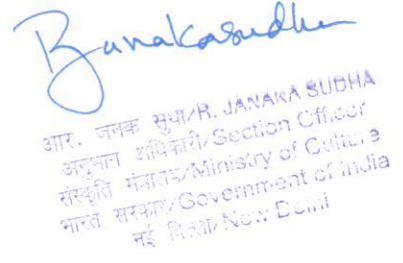 RJanakasudha
आर. जनक सुधा/R. JANAKA SUDHA
अनुभाग अधिकारी/Section Officer
संस्कृति मंत्रालय/Ministry of Culture
भारत सरकार/Government of India
नई दिल्ली/New Delhi